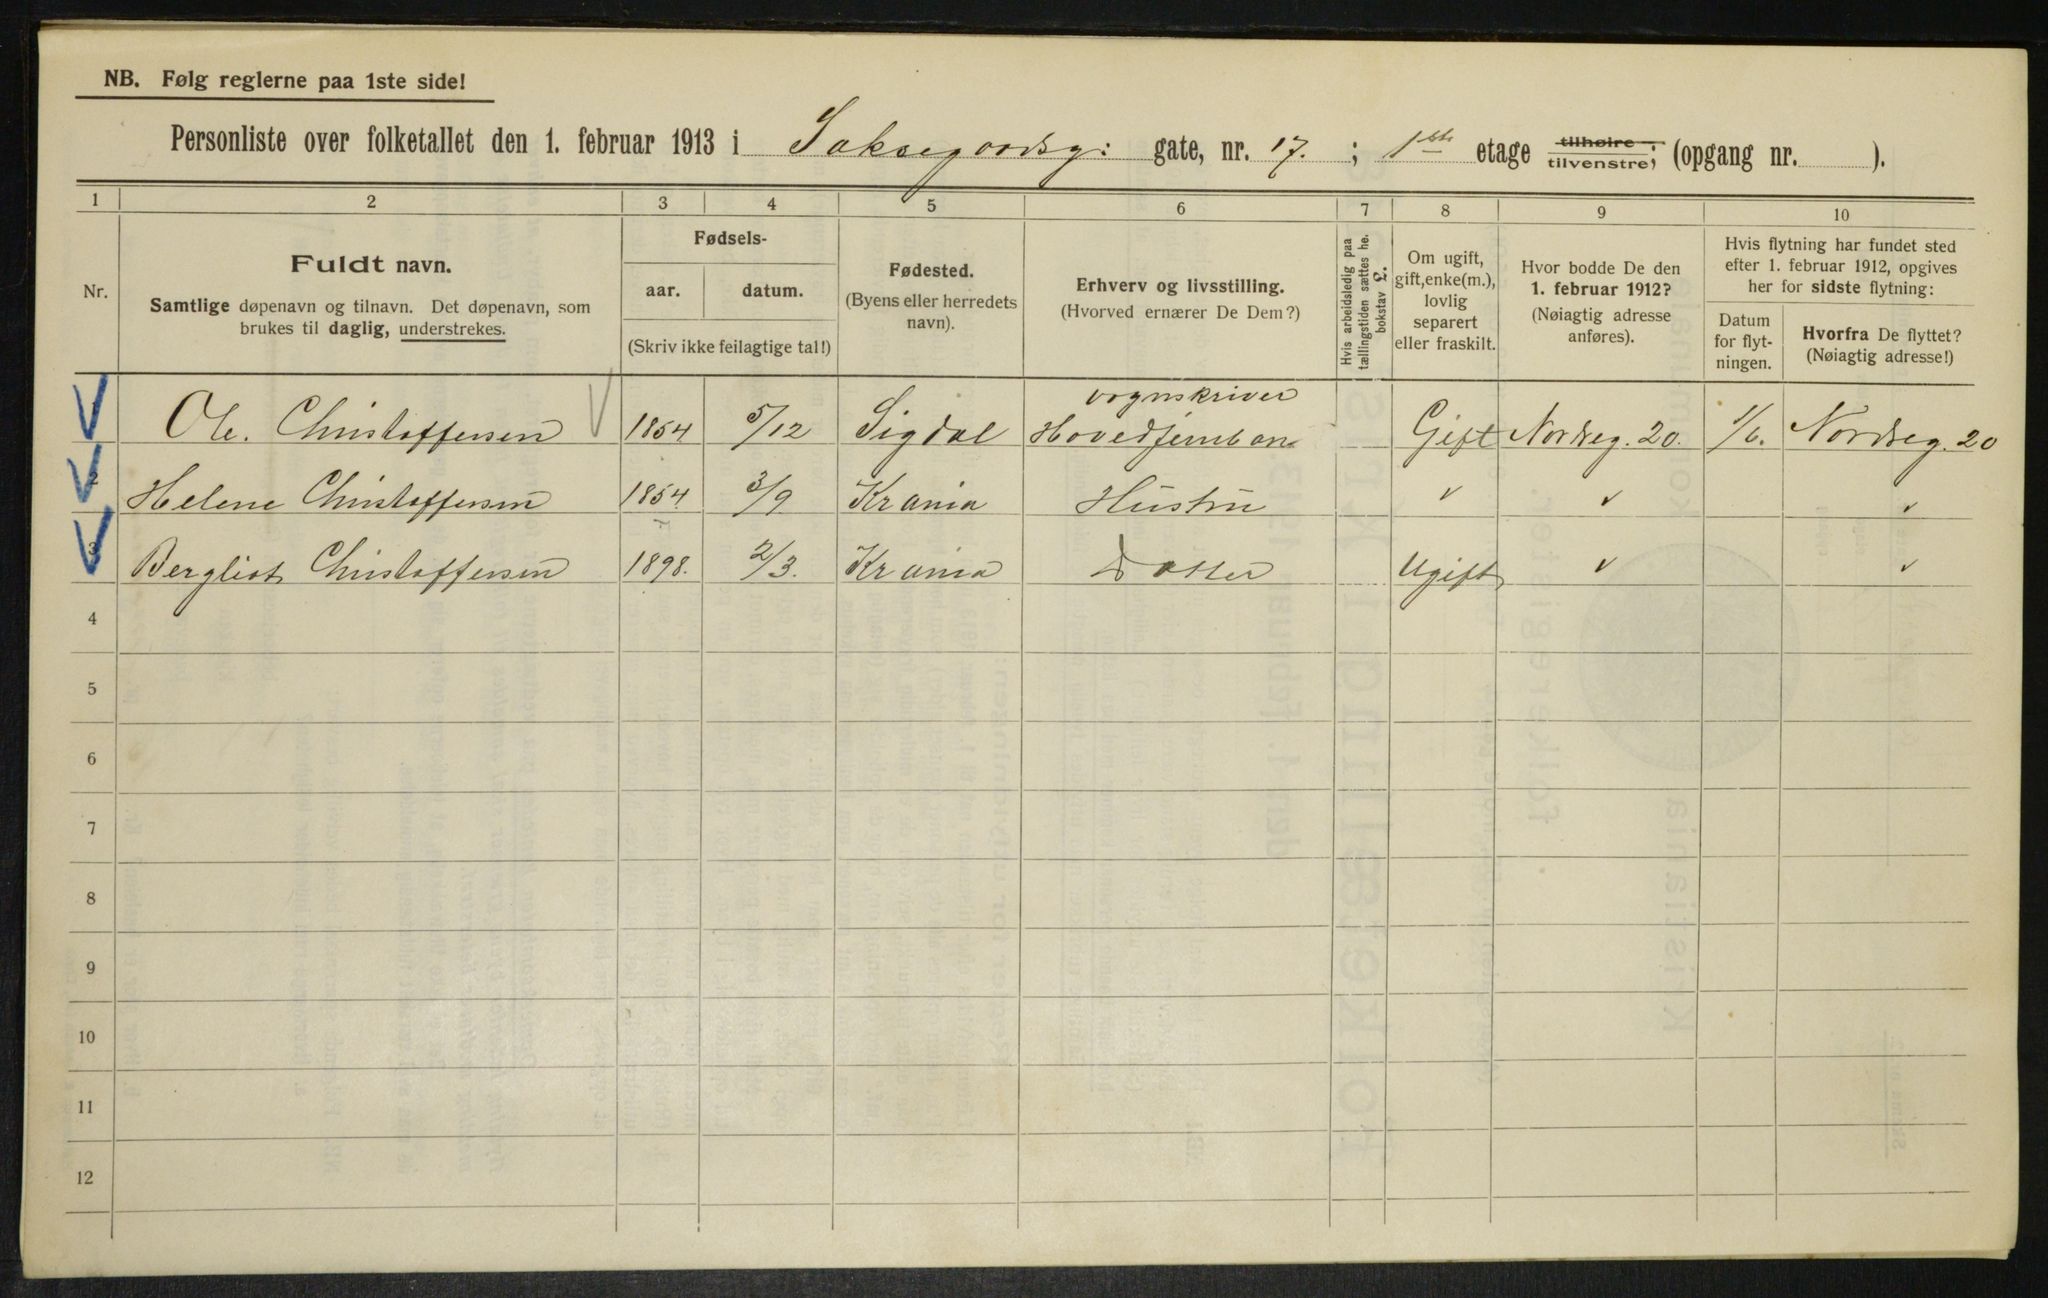 NB. Følg reglerne paa 1ste side!
Personliste over folketallet den 1. februar 1913 i Saksegaardsg: gate, nr. 17. ; 1ste etage tilhøire tilvenstre; (opgang nr. ).
1 2 3 4 5 6 7 8 9 10
Nr.
Fuldt navn.
Samtlige døpenavn og tilnavn. Det døpenavn, som
brukes til daglig, understrekes.
Fødsels-
aar. datum.
(Skriv ikke feilagtige tal!)
Fødested.
(Byens eller herredets
navn).
Erhverv og livsstilling.
(Hvorved ernærer De Dem?)
Hvis arbeidsledig paa
tællingstiden sættes he.
bokstav L.
Om ugift,
gift, enke(m.),
lovlig
separert
eller fraskilt.
Hvor bodde De den
1. februar 1912?
(Nøiagtig adresse
anføres).
Hvis flytning har fundet sted
efter 1. februar 1912, opgives
her for sidste flytning:
Datum
for flyt-
ningen.
Hvorfra De flyttet?
(Nøiagtig adresse!)
vognskriver
1 Ole. Christoffersen 1854 5/12 Sigdal Hovedjernban. Gift Nordreg. 20. 1/6. Nordreg. 20
2 Helene Christoffersen 1854 3/9 Krania Hustru " " "
3 Bergliot Christoffersen 1898. 2/3. Krania Datter Ugift " "
4
5
6
7
8
9
10
11
12